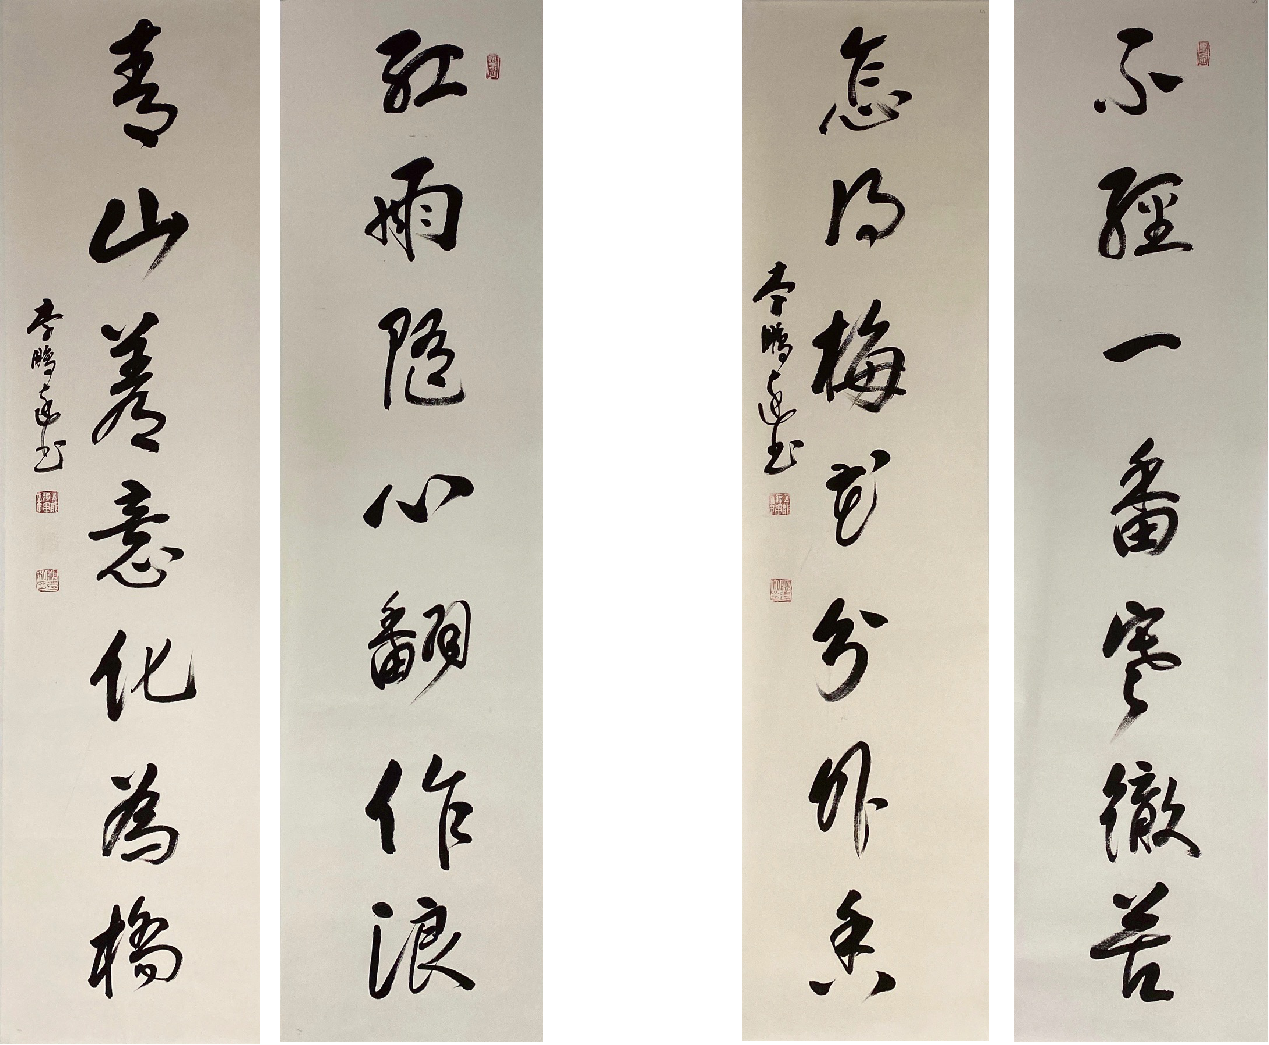 不經一番寒徹苦
怎得梅花分外香
李鵬遠书
紅雨随心翻作浪
青山着意化為橋
李鵬遠书